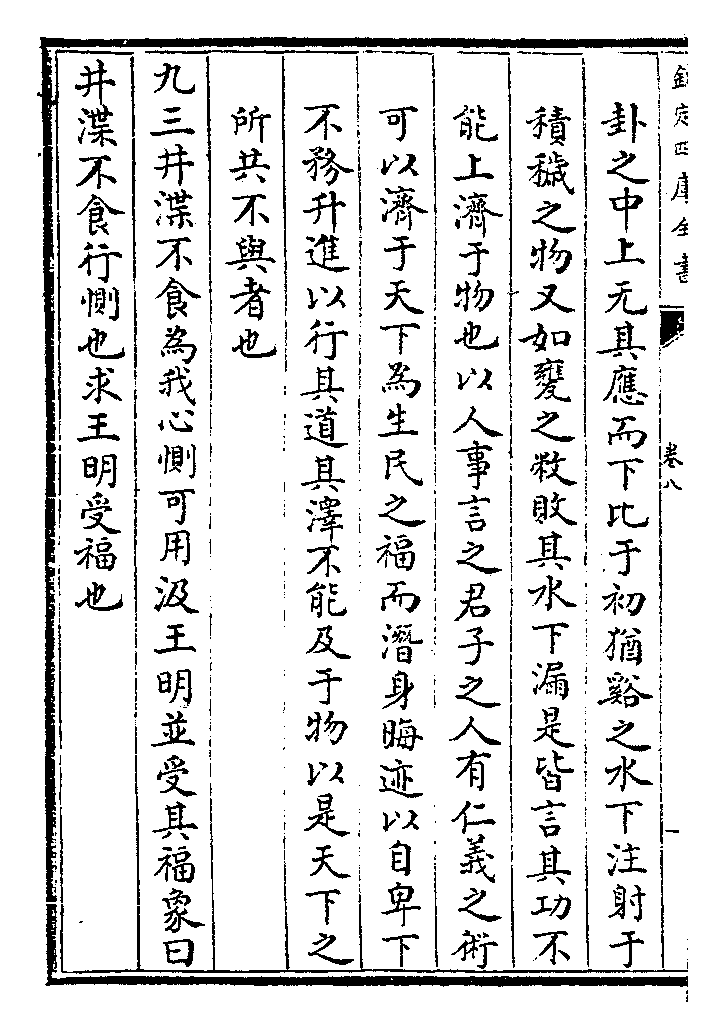 欽定四庫全書
卷八
卦之中上无其應而下比于初猶谿之水下注射于
積穢之物又如甕之敝敗其水下漏是皆言其功不
能上濟于物也以人事言之君子之人有仁義之術
可以濟于天下為生民之福而潛身晦迹以自卑下
不務升進以行其道其澤不能及于物以是天下之
所共不與者也
九三井渫不食為我心惻可用汲王明並受其福象曰
井渫不食行惻也求王明受福也